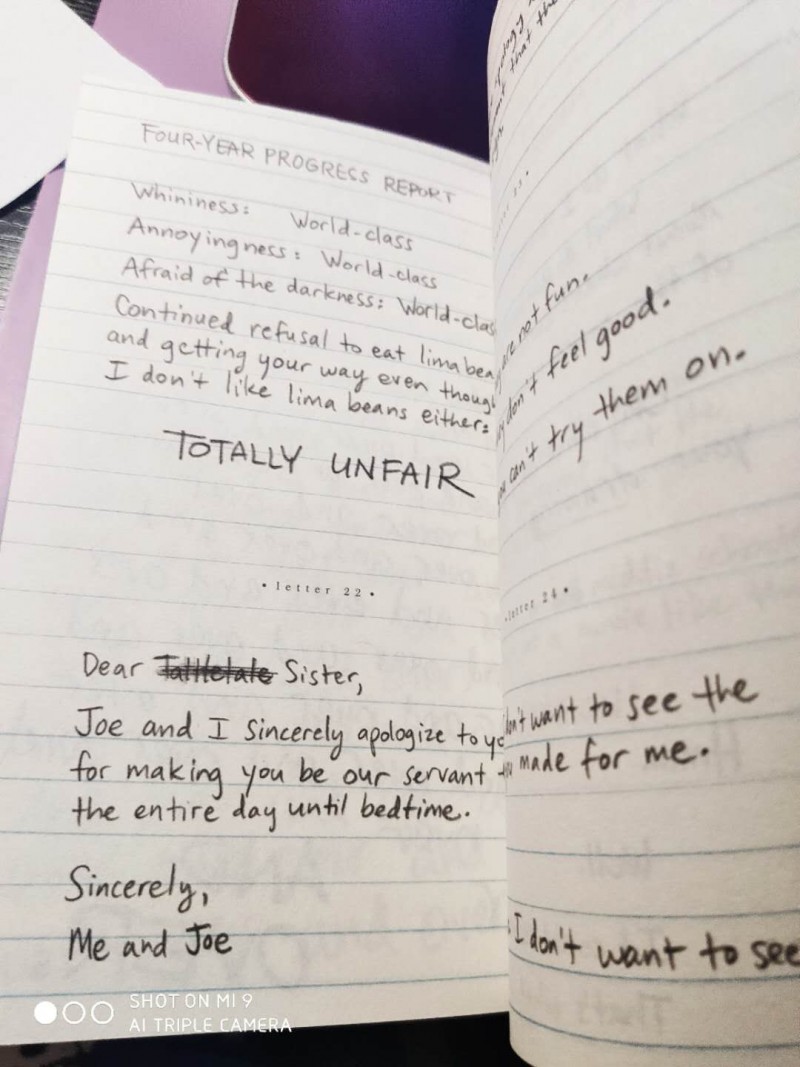 FOUR-YEAR PROGRESS REPORT
Whininess: World-class
Annoyingness: World-class
Afraid of the darkness: World-clas
Continued refusal to eat lima bea
and getting your way even though
I don't like lima beans either:
TOTALLY UNFAIR
• letter 22 •
Dear Tattletale Sister,
Joe and I sincerely apologize to yo
for making you be our servant
the entire day until bedtime.
Sincerely,
Me and Joe
that the
are not fun.
don't feel good.
can't try them on.
letter 24 •
don't want to see the
made for me.
I don't want to see
SHOT ON MI 9
AI TRIPLE CAMERA